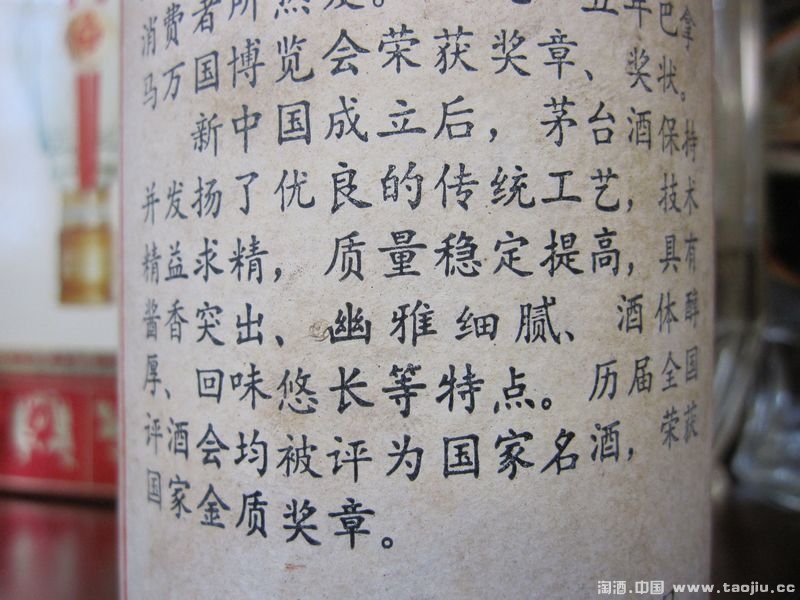 消费者所热爱。
马万国博览会荣获奖章、奖状。
新中国成立后，茅台酒保持
并发扬了优良的传统工艺，技术
精益求精，质量稳定提高，具有
酱香突出、幽雅细腻、酒体醇
厚、回味悠长等特点。历届全国
评酒会均被评为国家名酒，荣获
国家金质奖章。
淘酒.中国 www.taojiu.cc